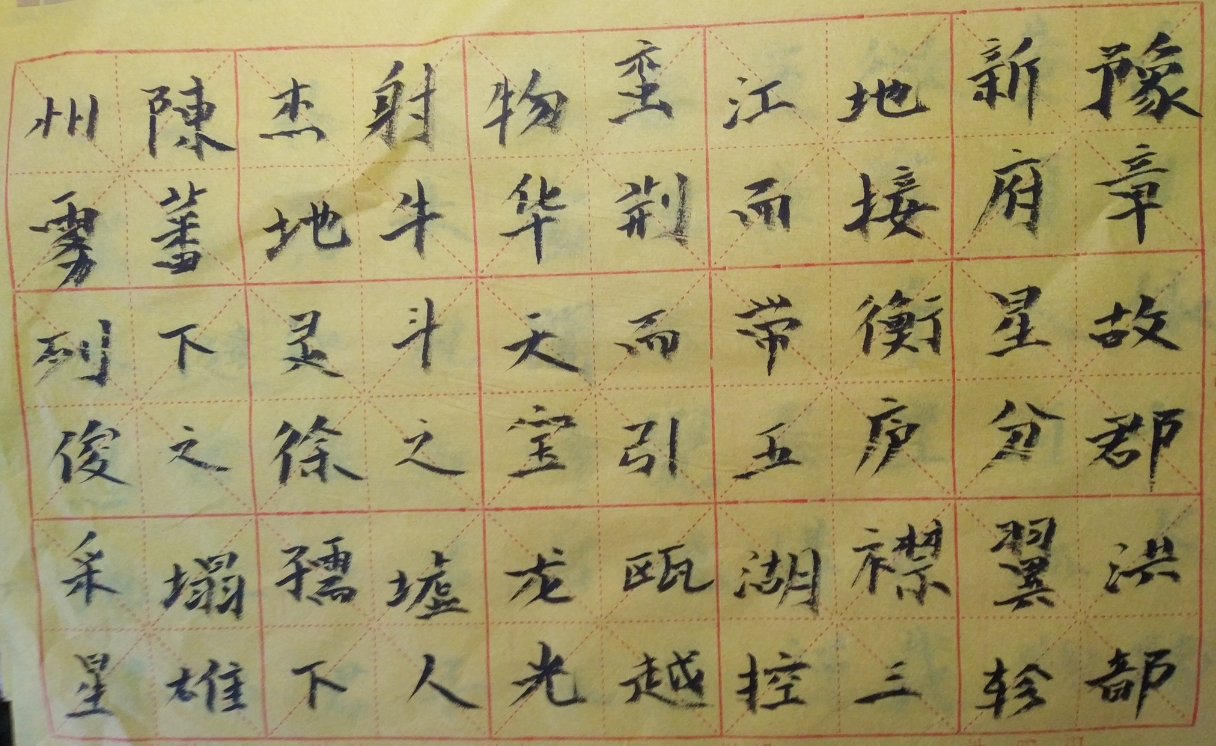 豫章故郡洪部
新府星分翼轸
地接衡庐襟三
江而带五湖控
蛮荆而引瓯越
物华天宝龙光
射牛斗之墟人
杰地灵徐孺下
陳蕃下之塌雄
州雾列俊采星